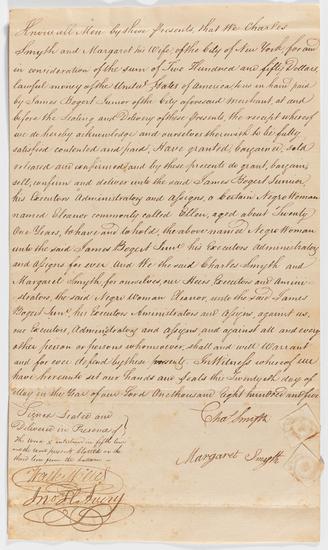 Know all Men by these Presents, that We Charles
Smyth and Margaret his Wife, of the City of New York, for and
in consideration of the sum of Two Hundred and fifty Dollars,
lawful money of the United States of America, to us in hand paid
by James Bogert Junior of the City aforesaid Merchant, at and
before the Sealing and Delivery of these Presents, the receipt whereof
we do hereby acknowledge and ourselves therewith to be fully
satisfied contented and paid, Have granted, bargained, sold
released and confirmed and by these presents do grant, bargain,
sell, confirm and deliver unto the said James Bogert Junior,
his Executors Administrators and Assigns, a Certain Negro Woman
named Eleanor commonly called Ellen, aged about Twenty
One Years, to have and to hold, the above named Negro Woman
unto the said James Bogert Junr. his Executors Administrators
and Assigns for ever And We the said Charles Smyth and
Margaret Smyth for ourselves, our Heirs Executors and Admin-
istrators, the said Negro Woman Eleanor, unto the said James
Bogert Junr. his Executors Administrators and Assigns, against us,
our Executors, Administrators and assigns, and against all and every
other person or persons whomsoever, shall and will Warrant
and for ever defend by these presents. In Witness whereof we
have hereunto set our Hands and Seals the Twentyeth day of
May in the Year of our Lord One thousand Eight hundred and five
Signed Sealed and
Delivered in Presence of
the word interlined in fifth line
and the word presents blotted on the
third line from the bottom
Chas. Smyth
Margaret Smyth